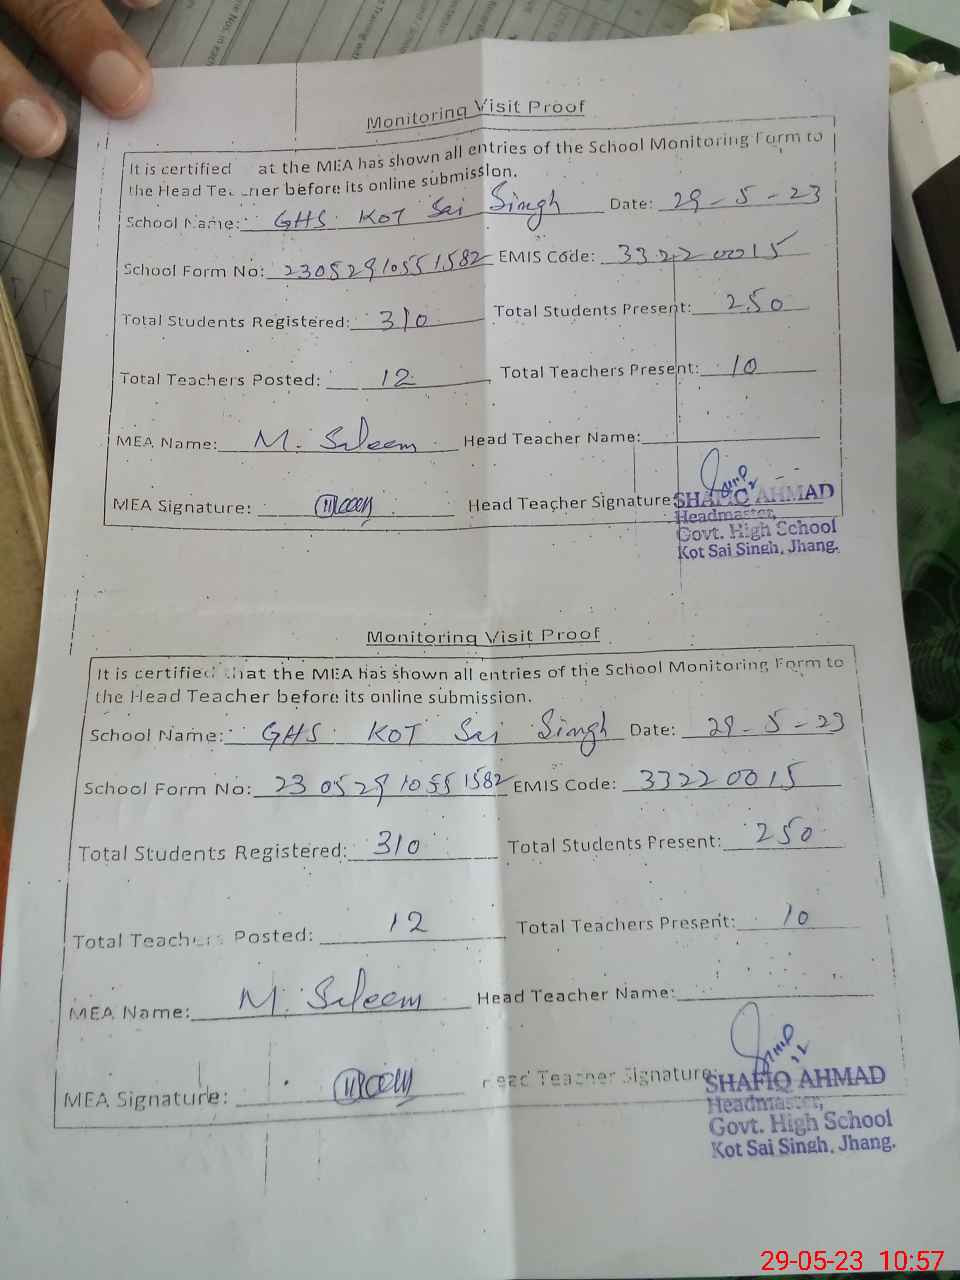 Monitoring Visit Proof
It is certified at the MEA has shown all entries of the School Monitoring Form to
the Head Teacher before its online submission.
School Name: GHS KOT Sai Singh Date: 29-5-23
School Form No: 23052910551582 EMIS Code: 33220015
Total Students Registered: 310 Total Students Present: 250
Total Teachers Posted: 12 Total Teachers Present: 10
MEA Name: M. Saleem Head Teacher Name:
MEA Signature: Head Teacher Signature
SHAFIQ AHMAD
Headmaster,
Govt. High School
Kot Sai Singh, Jhang.
Monitoring Visit Proof
It is certified that the MEA has shown all entries of the School Monitoring Form to
the Head Teacher before its online submission.
School Name: GHS KOT Sai Singh Date: 29-5-23
School Form No: 23052910551582 EMIS Code: 33220015
Total Students Registered: 310 Total Students Present: 250
Total Teachers Posted: 12 Total Teachers Present: 10
MEA Name: M. Saleem Head Teacher Name:
MEA Signature: Head Teacher Signature:
SHAFIQ AHMAD
Headmaster,
Govt. High School
Kot Sai Singh, Jhang.
29-05-23 10:57